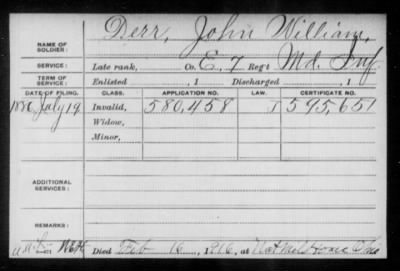 NAME OF SOLDIER: Derr, John William,
SERVICE: Late rank, Co. E, 7 Reg't Md. Inf.
TERM OF SERVICE: Enlisted , 1 Discharged , 1
DATE OF FILING. CLASS. APPLICATION NO. LAW. CERTIFICATE NO.
1886 July 19 Invalid, 580,458 J 595,651
Widow,
Minor,
ADDITIONAL SERVICES:
REMARKS:
Died Feb 16, 1916, at Nat Mil Home